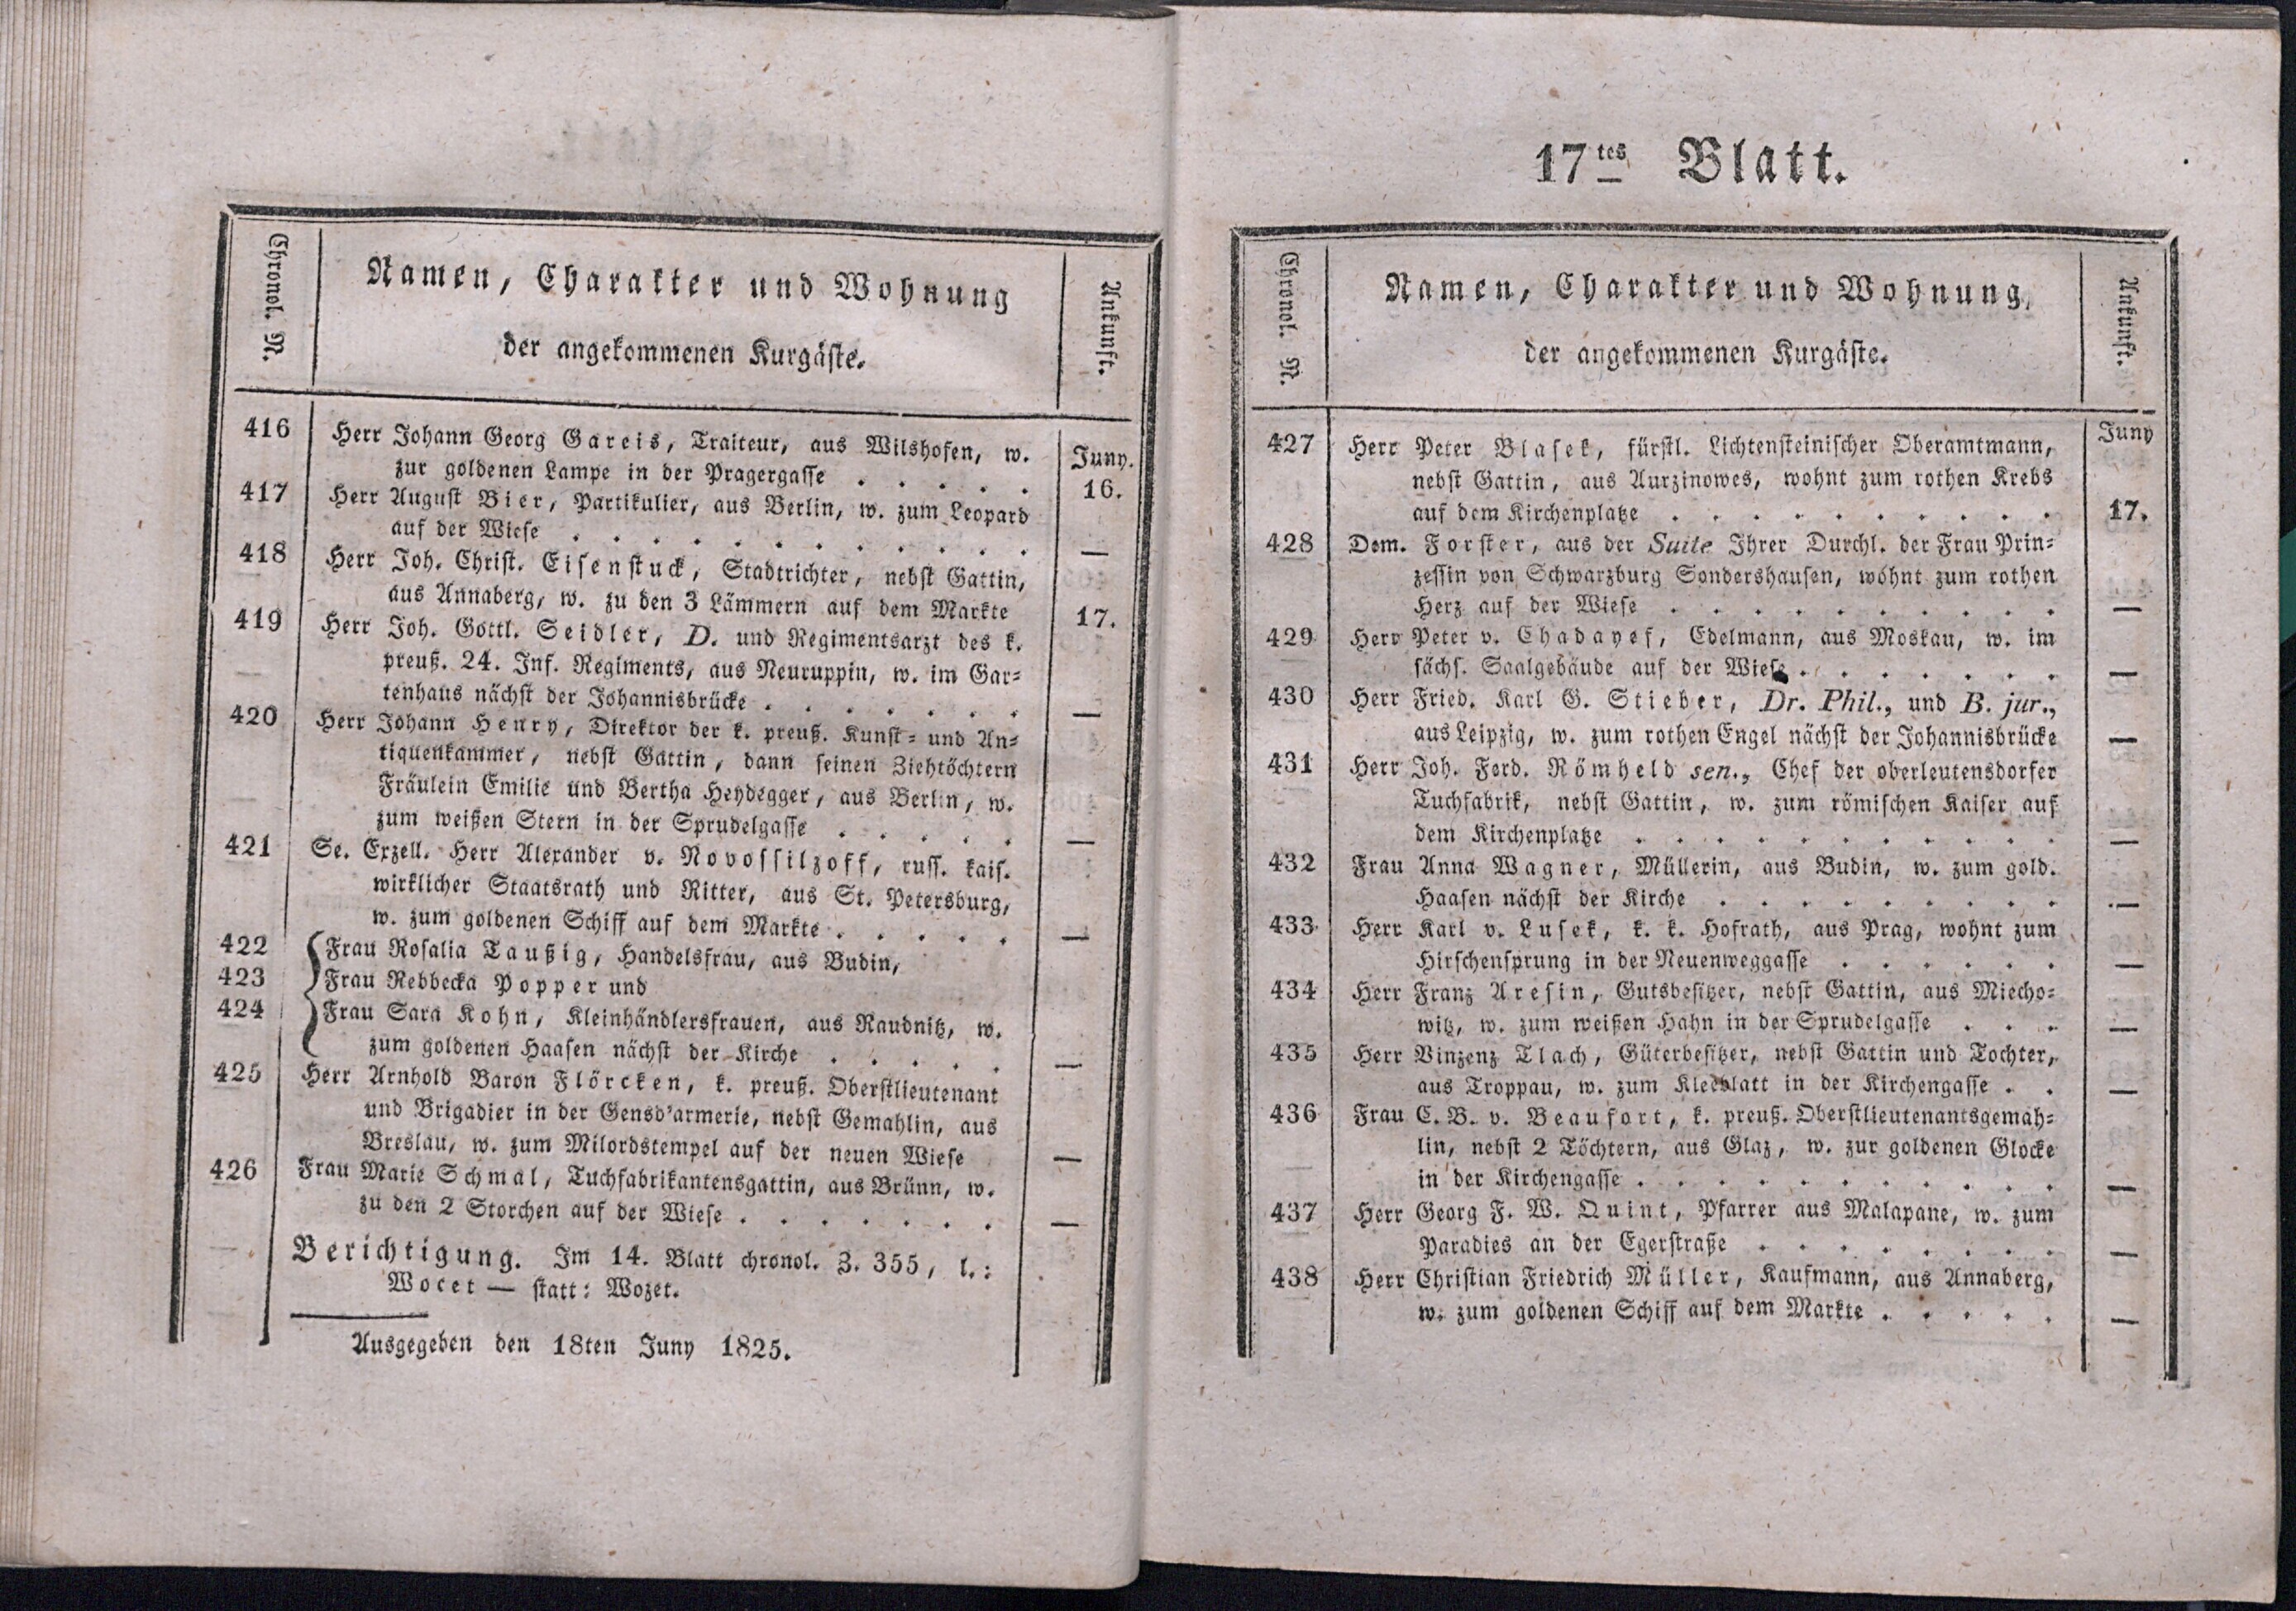 Chronol. N.
Namen, Charakter und Wohnung
der angekommenen Kurgäste.
Ankunft.
416 Herr Johann Georg Gareis, Traiteur, aus Wilshofen, w. Juny.
zur goldenen Lampe in der Pragergasse . . . . . 16.
417 Herr August Bier, Partikulier, aus Berlin, w. zum Leopard
auf der Wiese . . . . . . . . . . . . —
418 Herr Joh. Christ. Eisenstuck, Stadtrichter, nebst Gattin,
aus Annaberg, w. zu den 3 Lämmern auf dem Markte 17.
419 Herr Joh. Gottl. Seidler, D. und Regimentsarzt des k.
preuß. 24. Inf. Regiments, aus Neuruppin, w. im Gar=
tenhaus nächst der Johannisbrücke . . . . . . . —
420 Herr Johann Henry, Direktor der k. preuß. Kunst= und An=
tiquenkammer, nebst Gattin, dann seinen Ziehtöchtern
Fräulein Emilie und Bertha Heydegger, aus Berlin, w.
zum weißen Stern in der Sprudelgasse . . . . . —
421 Se. Erzell. Herr Alexander v. Novossilzoff, russ. kais.
wirklicher Staatsrath und Ritter, aus St. Petersburg,
w. zum goldenen Schiff auf dem Markte . . . . . —
422 Frau Rosalia Taußig, Handelsfrau, aus Budin,
423 Frau Rebbecka Popper und
424 Frau Sara Kohn, Kleinhändlersfrauen, aus Raudnitz, w.
zum goldenen Haasen nächst der Kirche . . . . . —
425 Herr Arnhold Baron Flörcken, k. preuß. Oberstlieutenant
und Brigadier in der Gensd'armerie, nebst Gemahlin, aus
Breslau, w. zum Milordstempel auf der neuen Wiese —
426 Frau Marie Schmal, Tuchfabrikantensgattin, aus Brünn, w.
zu den 2 Storchen auf der Wiese . . . . . . . —
Berichtigung. Im 14. Blatt chronol. Z. 355, l.:
Wocet — statt: Wozet.
Ausgegeben den 18ten Juny 1825.
17tes Blatt.
Chronol. N.
Namen, Charakter und Wohnung,
der angekommenen Kurgäste.
Ankunft.
Juny
427 Herr Peter Blasek, fürstl. Lichtensteinischer Oberamtmann,
nebst Gattin, aus Aurzinowes, wohnt zum rothen Krebs
auf dem Kirchenplatze . . . . . . . . . . 17.
428 Dem. Forster, aus der Suite Ihrer Durchl. der Frau Prin=
zessin von Schwarzburg Sondershausen, wohnt zum rothen
Herz auf der Wiese . . . . . . . . . . —
429 Herr Peter v. Chadayef, Edelmann, aus Moskau, w. im
sächs. Saalgebäude auf der Wiese . . . . . . . —
430 Herr Fried. Karl G. Stieber, Dr. Phil., und B. jur.,
aus Leipzig, w. zum rothen Engel nächst der Johannisbrücke —
431 Herr Joh. Ferd. Römheld sen., Chef der oberleutensdorfer
Tuchfabrik, nebst Gattin, w. zum römischen Kaiser auf
dem Kirchenplatze . . . . . . . . . . . —
432 Frau Anna Wagner, Müllerin, aus Budin, w. zum gold.
Haasen nächst der Kirche . . . . . . . . . —
433 Herr Karl v. Lusek, k. k. Hofrath, aus Prag, wohnt zum
Hirschensprung in der Neuenweggasse . . . . . . —
434 Herr Franz Aresin, Gutsbesitzer, nebst Gattin, aus Miecho=
witz, w. zum weißen Hahn in der Sprudelgasse . . . —
435 Herr Vinzenz Tlach, Güterbesitzer, nebst Gattin und Tochter,
aus Troppau, w. zum Kleeblatt in der Kirchengasse . . —
436 Frau C. B. v. Beaufort, k. preuß. Oberstlieutenantsgemah=
lin, nebst 2 Töchtern, aus Glaz, w. zur goldenen Glocke
in der Kirchengasse . . . . . . . . . . . —
437 Herr Georg F. W. Quint, Pfarrer aus Malapane, w. zum
Paradies an der Egerstraße . . . . . . . . —
438 Herr Christian Friedrich Müller, Kaufmann, aus Annaberg,
w. zum goldenen Schiff auf dem Markte . . . . . —